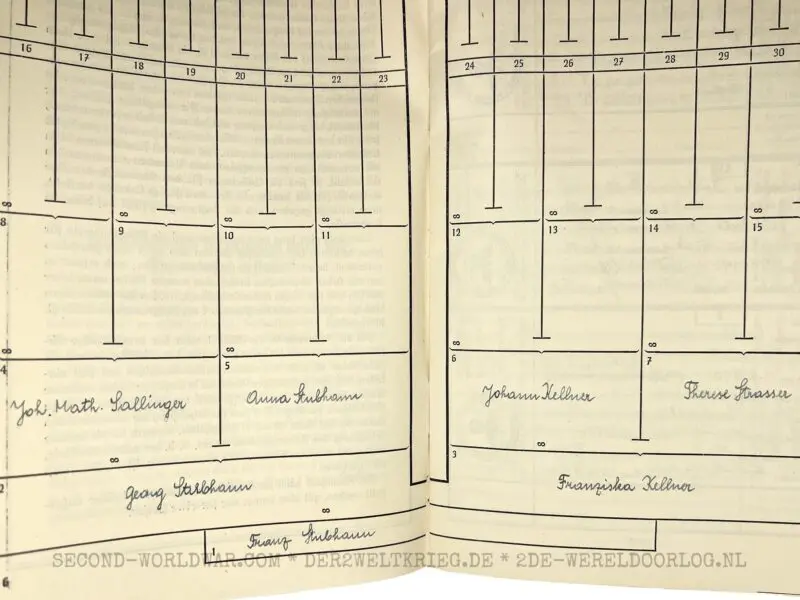 16 17 18 19 20 21 22 23 24 25 26 27 28 29 30
8 9 10 11 12 13 14 15
4 5 6 7
Joh. Math. Sallinger Anna Stubhann Johann Kellner Therese Strasser
2 3
Georg Stubhann Franziska Kellner
1 Franz Stubhann
SECOND-WORLDWAR.COM * DER2WELTKRIEG.DE * 2DE-WERELDOORLOG.NL
6